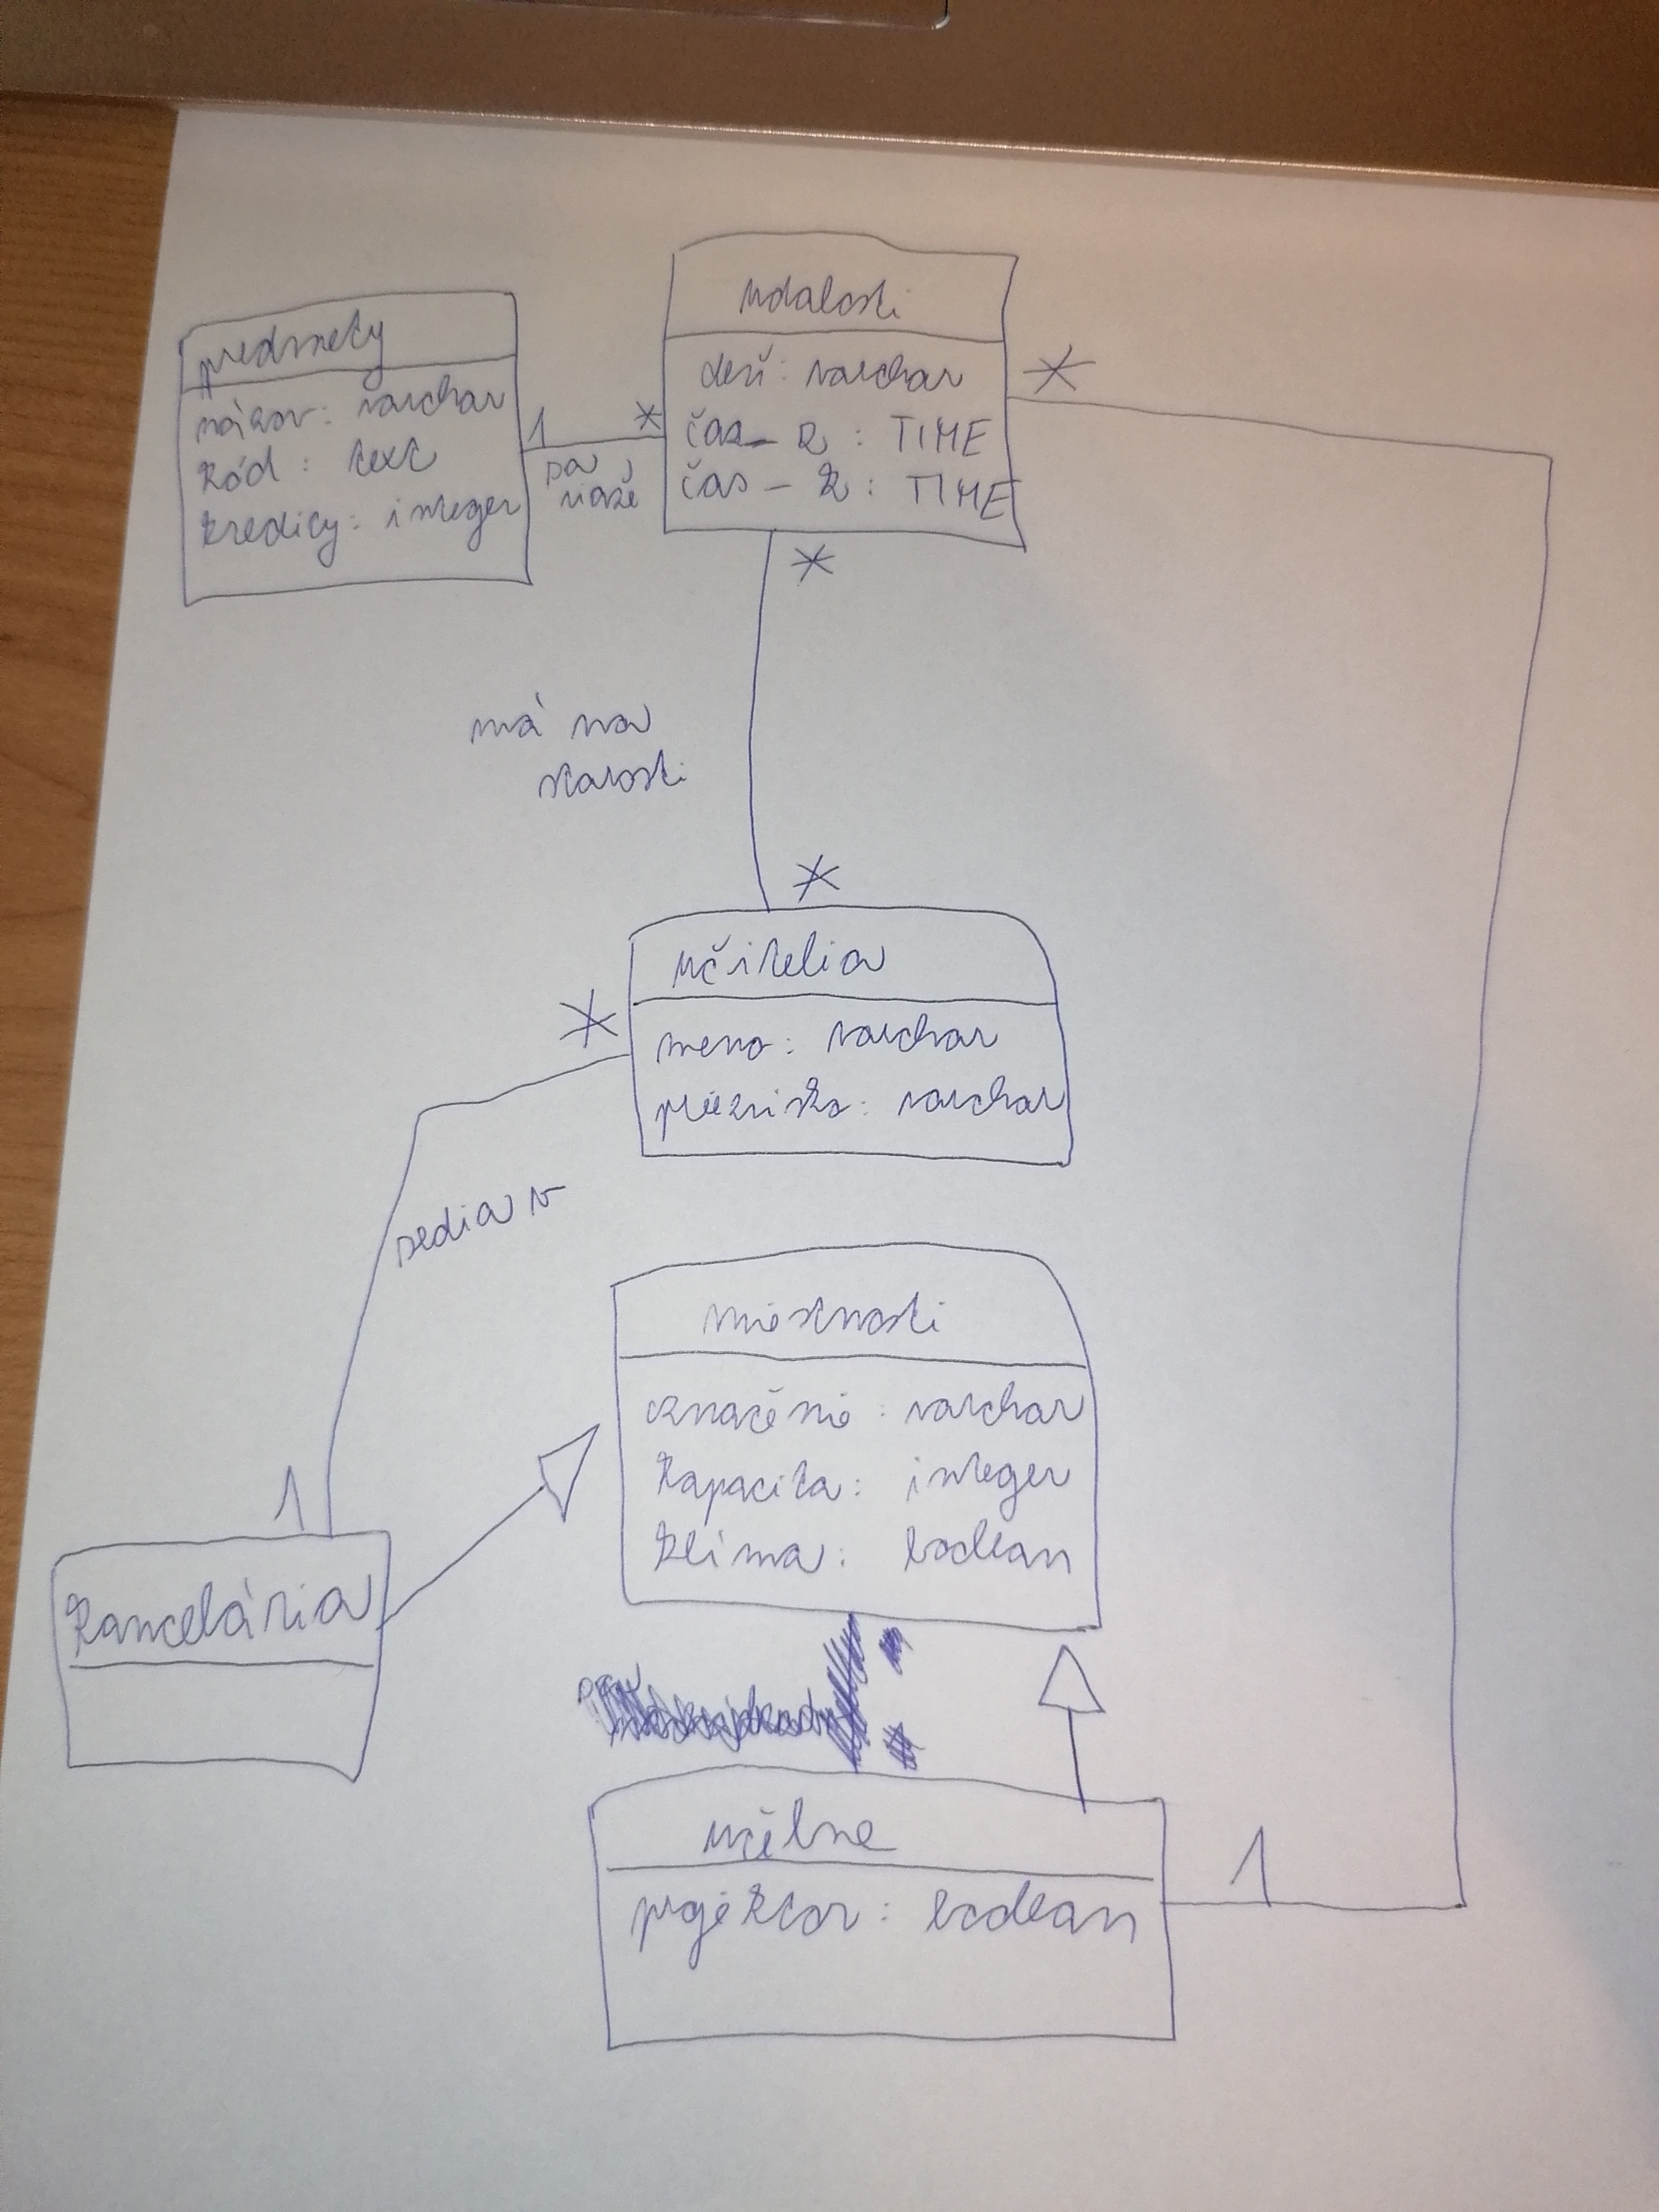 predmety
názov: varchar
kód: text
kredity: integer
1
*
sa
viaže
udalosti
deň: varchar
čas_z : TIME
čas_k : TIME
*
*
má na
starosti
*
učitelia
meno: varchar
priezvisko: varchar
*
sedia v
1
miestnosti
označenie: varchar
kapacita: integer
klíma: boolean
kancelária
učebne
projektor: boolean
1